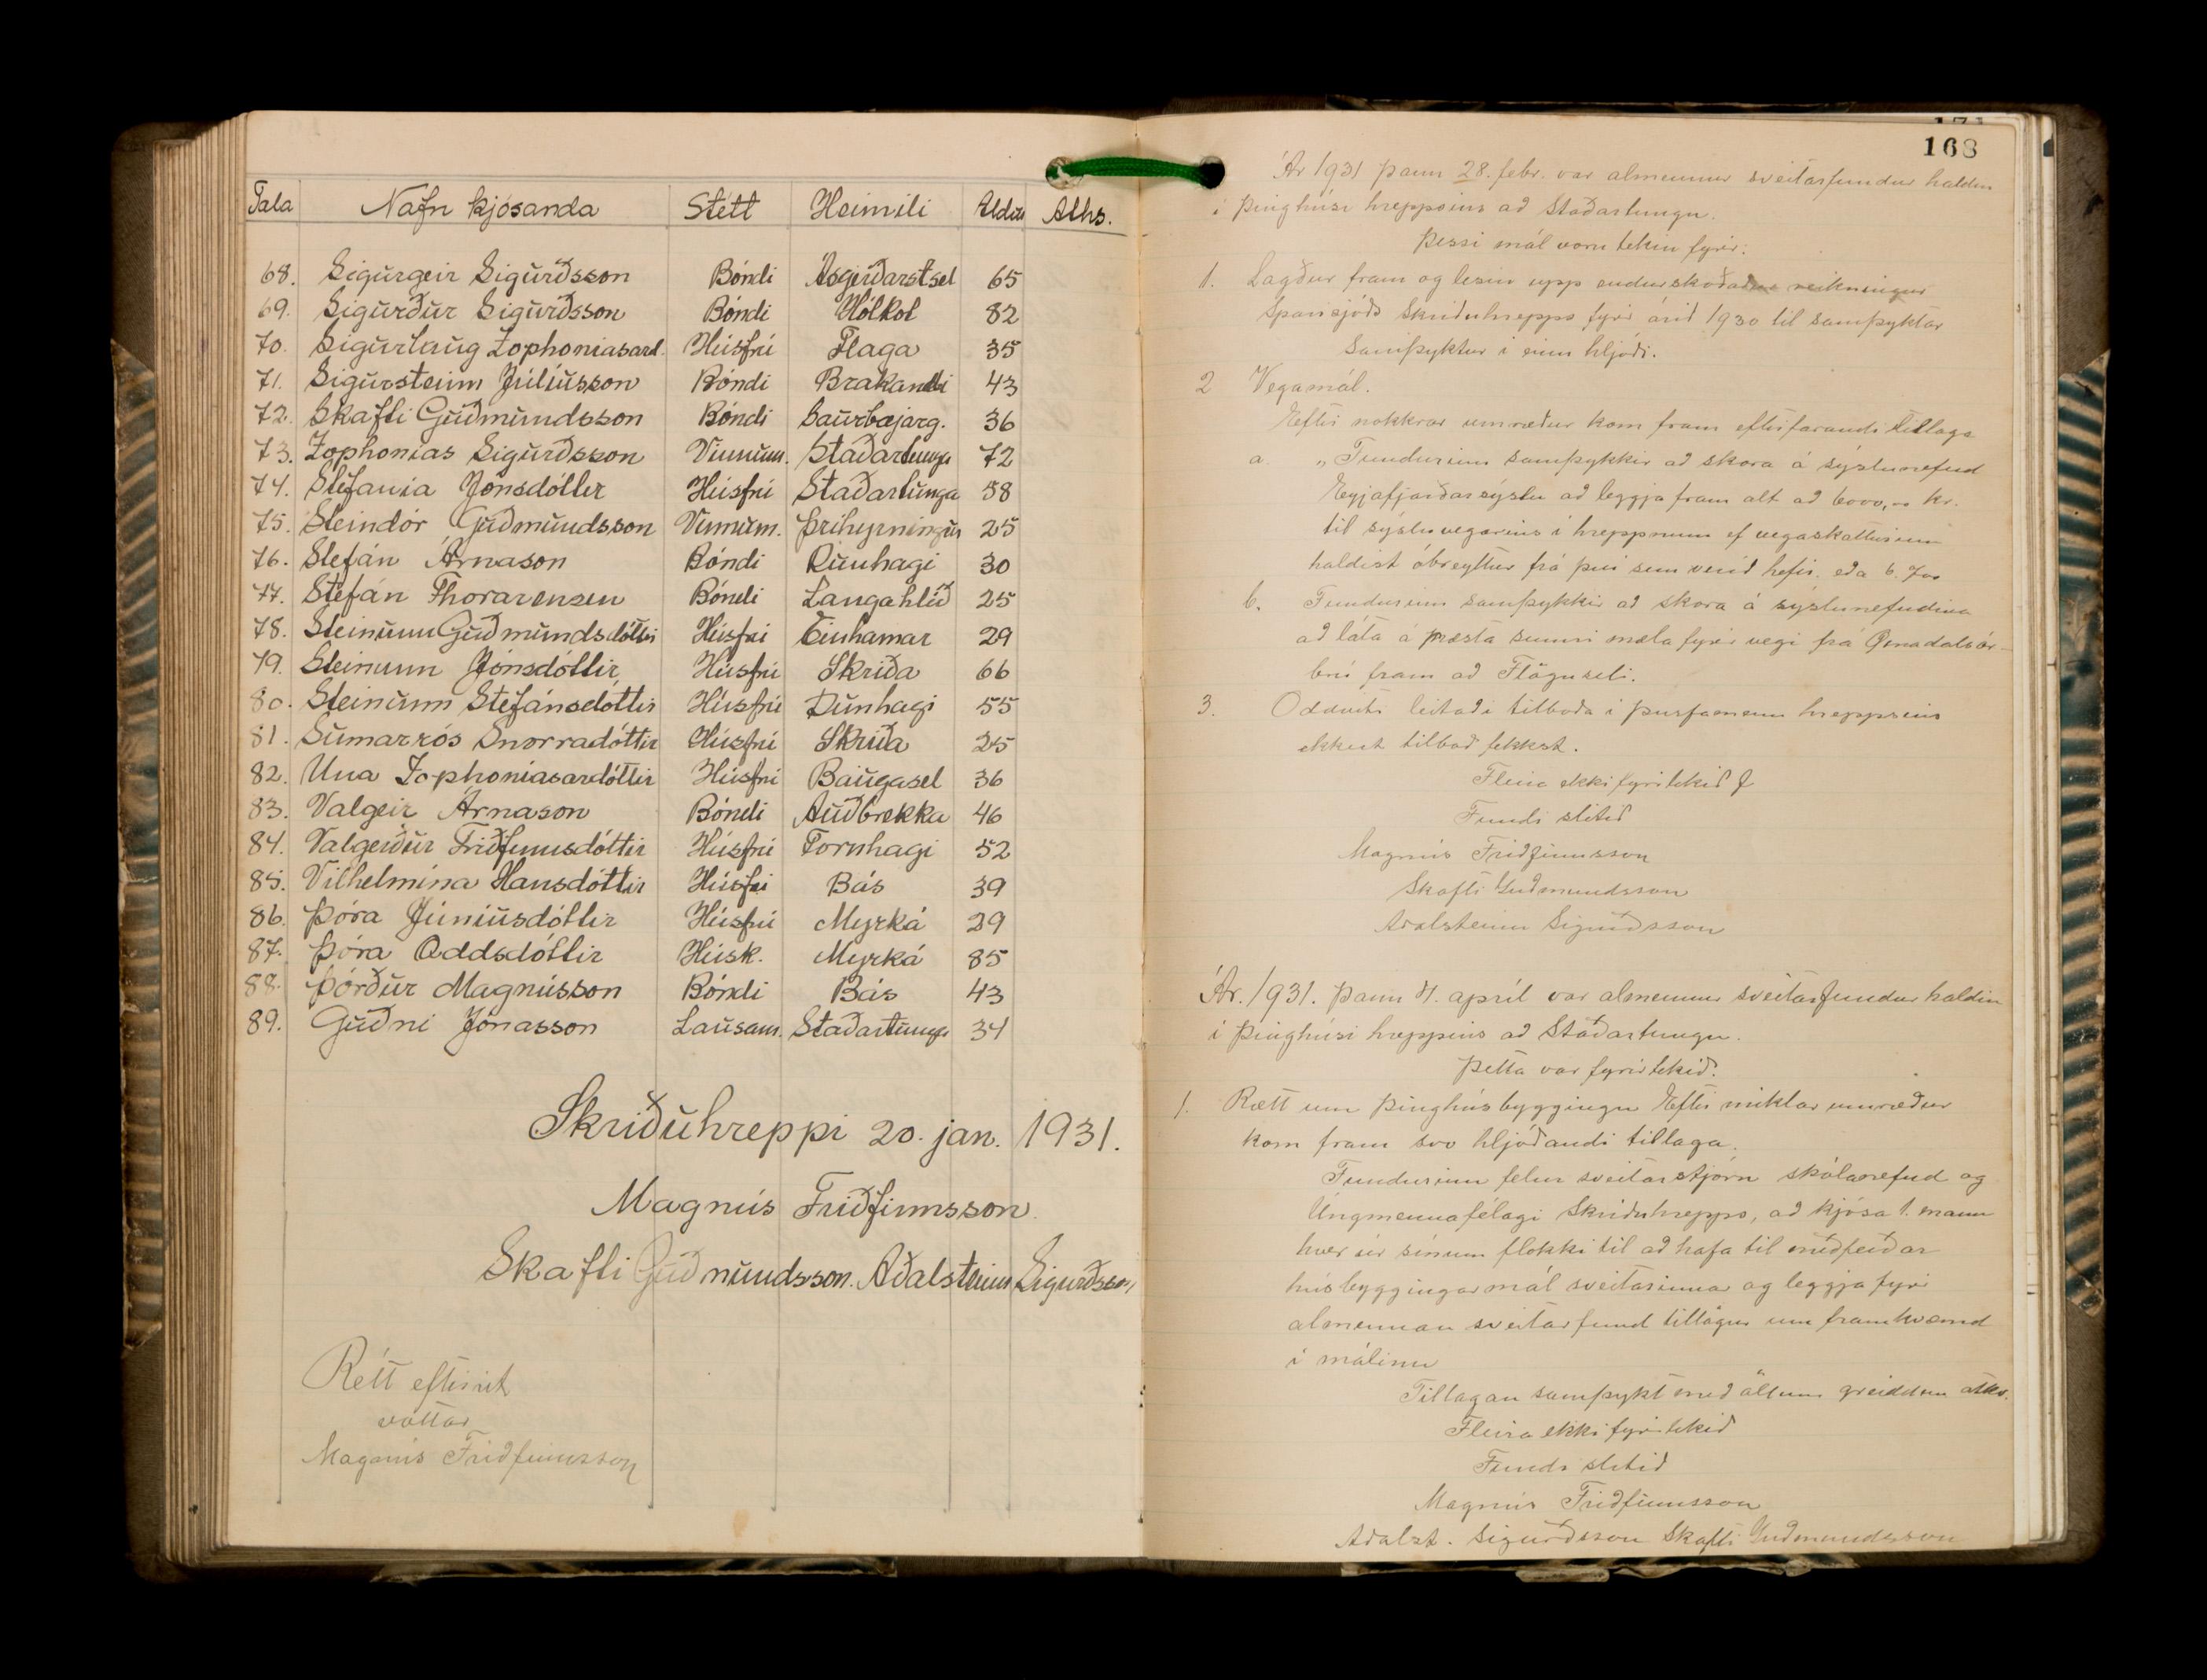 Tala Nafn kjósanda Stétt Heimili Aldur Aths.
68. Sigurgeir Sigurðsson Bóndi Ásgerðarstsel 65
69. Sigurður Sigurðsson Bóndi Hólkot 82
70. Sigurlaug Zophoniasard. Húsfrú Flaga 35
71. Sigursteinn Júlíusson Bóndi Brakandi 43
72. Skafti Guðmundsson Bóndi Saurbæjarg. 36
73. Zophonias Sigurðsson Vinnum. Staðartunga 72
74. Stefania Jónsdóttir Húsfrú Staðartunga 58
75. Steindór Guðmundsson Vinnum. Þríhyrningur 25
76. Stefán Árnason Bóndi Dunhagi 30
77. Stefán Thorarensen Bóndi Langahlíð 25
78. Steinunn Guðmundsdóttir Húsfrú Einhamar 29
79. Steinunn Jónsdóttir Húsfrú Skriða 66
80. Steinunn Stefánsdóttir Húsfrú Dunhagi 55
81. Sumarrós Snorradóttir Húsfrú Skriða 25
82. Una Zophoniasardóttir Húsfrú Baugasel 36
83. Valgeir Árnason Bóndi Auðbrekka 46
84. Valgerður Friðfinnsdóttir Húsfrú Fornhagi 52
85. Vilhelmína Hansdóttir Húsfrú Bás 39
86. Þóra Júníusdóttir Húsfrú Myrká 29
87. Þóra Oddsdóttir Húsk. Myrká 85
88. Þórður Magnússon Bóndi Bás 43
89. Guðni Jónasson Lausam. Staðartunga 34
Skriðuhreppi 20. jan. 1931.
Magnús Friðfinnsson
Skafti Guðmundsson. Aðalsteinn Sigurðsson
Rétt eftirrit
vottar
Magnús Friðfinnsson
168
Ár 1931 þann 28. febr. var almennur sveitarfundur haldin
í þinghúsi hreppsins að Staðartungu.
Þessi mál voru tekin fyrir.
1. Lagður fram og lesin upp endurskoðaður reikningur
Sparisjóðs Skriðuhrepps fyrir árið 1930 til samþyktar
Samþyktur í einu hljóði.
2 Vegamál.
Eftir nokkrar umræður kom fram eftirfarandi tillaga
a. „Fundurinn samþykkir að skora á sýslunefnd
Eyjafjarðarsýslu að leggja fram alt að 6000,00 kr.
til sýsluvegarins í hreppnum ef vegaskatturinn
haldist óbreyttur frá því sem verið hefir. eða 6. 700
b. Fundurinn samþykkir að skora á sýslunefndina
að láta á næsta sumri mæla fyrir vegi frá Öxnadalsár-
brú fram að Flöguseli.
3. Oddviti leitaði tilboða í þurfamenn hreppsins
ekkert tilboð fekkst.
Fleira ekki fyritekið
Fundi slitið
Magnús Friðfinnsson
Skafti Guðmundsson
Aðalsteinn Sigurðsson
Ár. 1931. þann 4. apríl var almennur sveitarfundur haldin
í þinghúsi hreppsins að Staðartungu.
Þetta var fyrirtekið.
1. Rætt um þinghúsbyggingu Eftir miklar umræður
kom fram svo hljóðandi tillaga.
Fundurinn felur sveitarstjórn skólanefnd og
Ungmennafélagi Skriðuhrepps, að kjósa 1. mann
hver úr sínum flokki til að hafa til meðferðar
húsbyggingarmál sveitarinnar og leggja fyri
almennan sveitarfund tillögur um framkvæmd
í málinu
Tillagan samþykt með öllum greiddum atkv.
Fleira ekki fyritekið
Fundi slitið
Magnús Friðfinnsson
Aðalst. Sigurðsson Skafti Guðmundsson